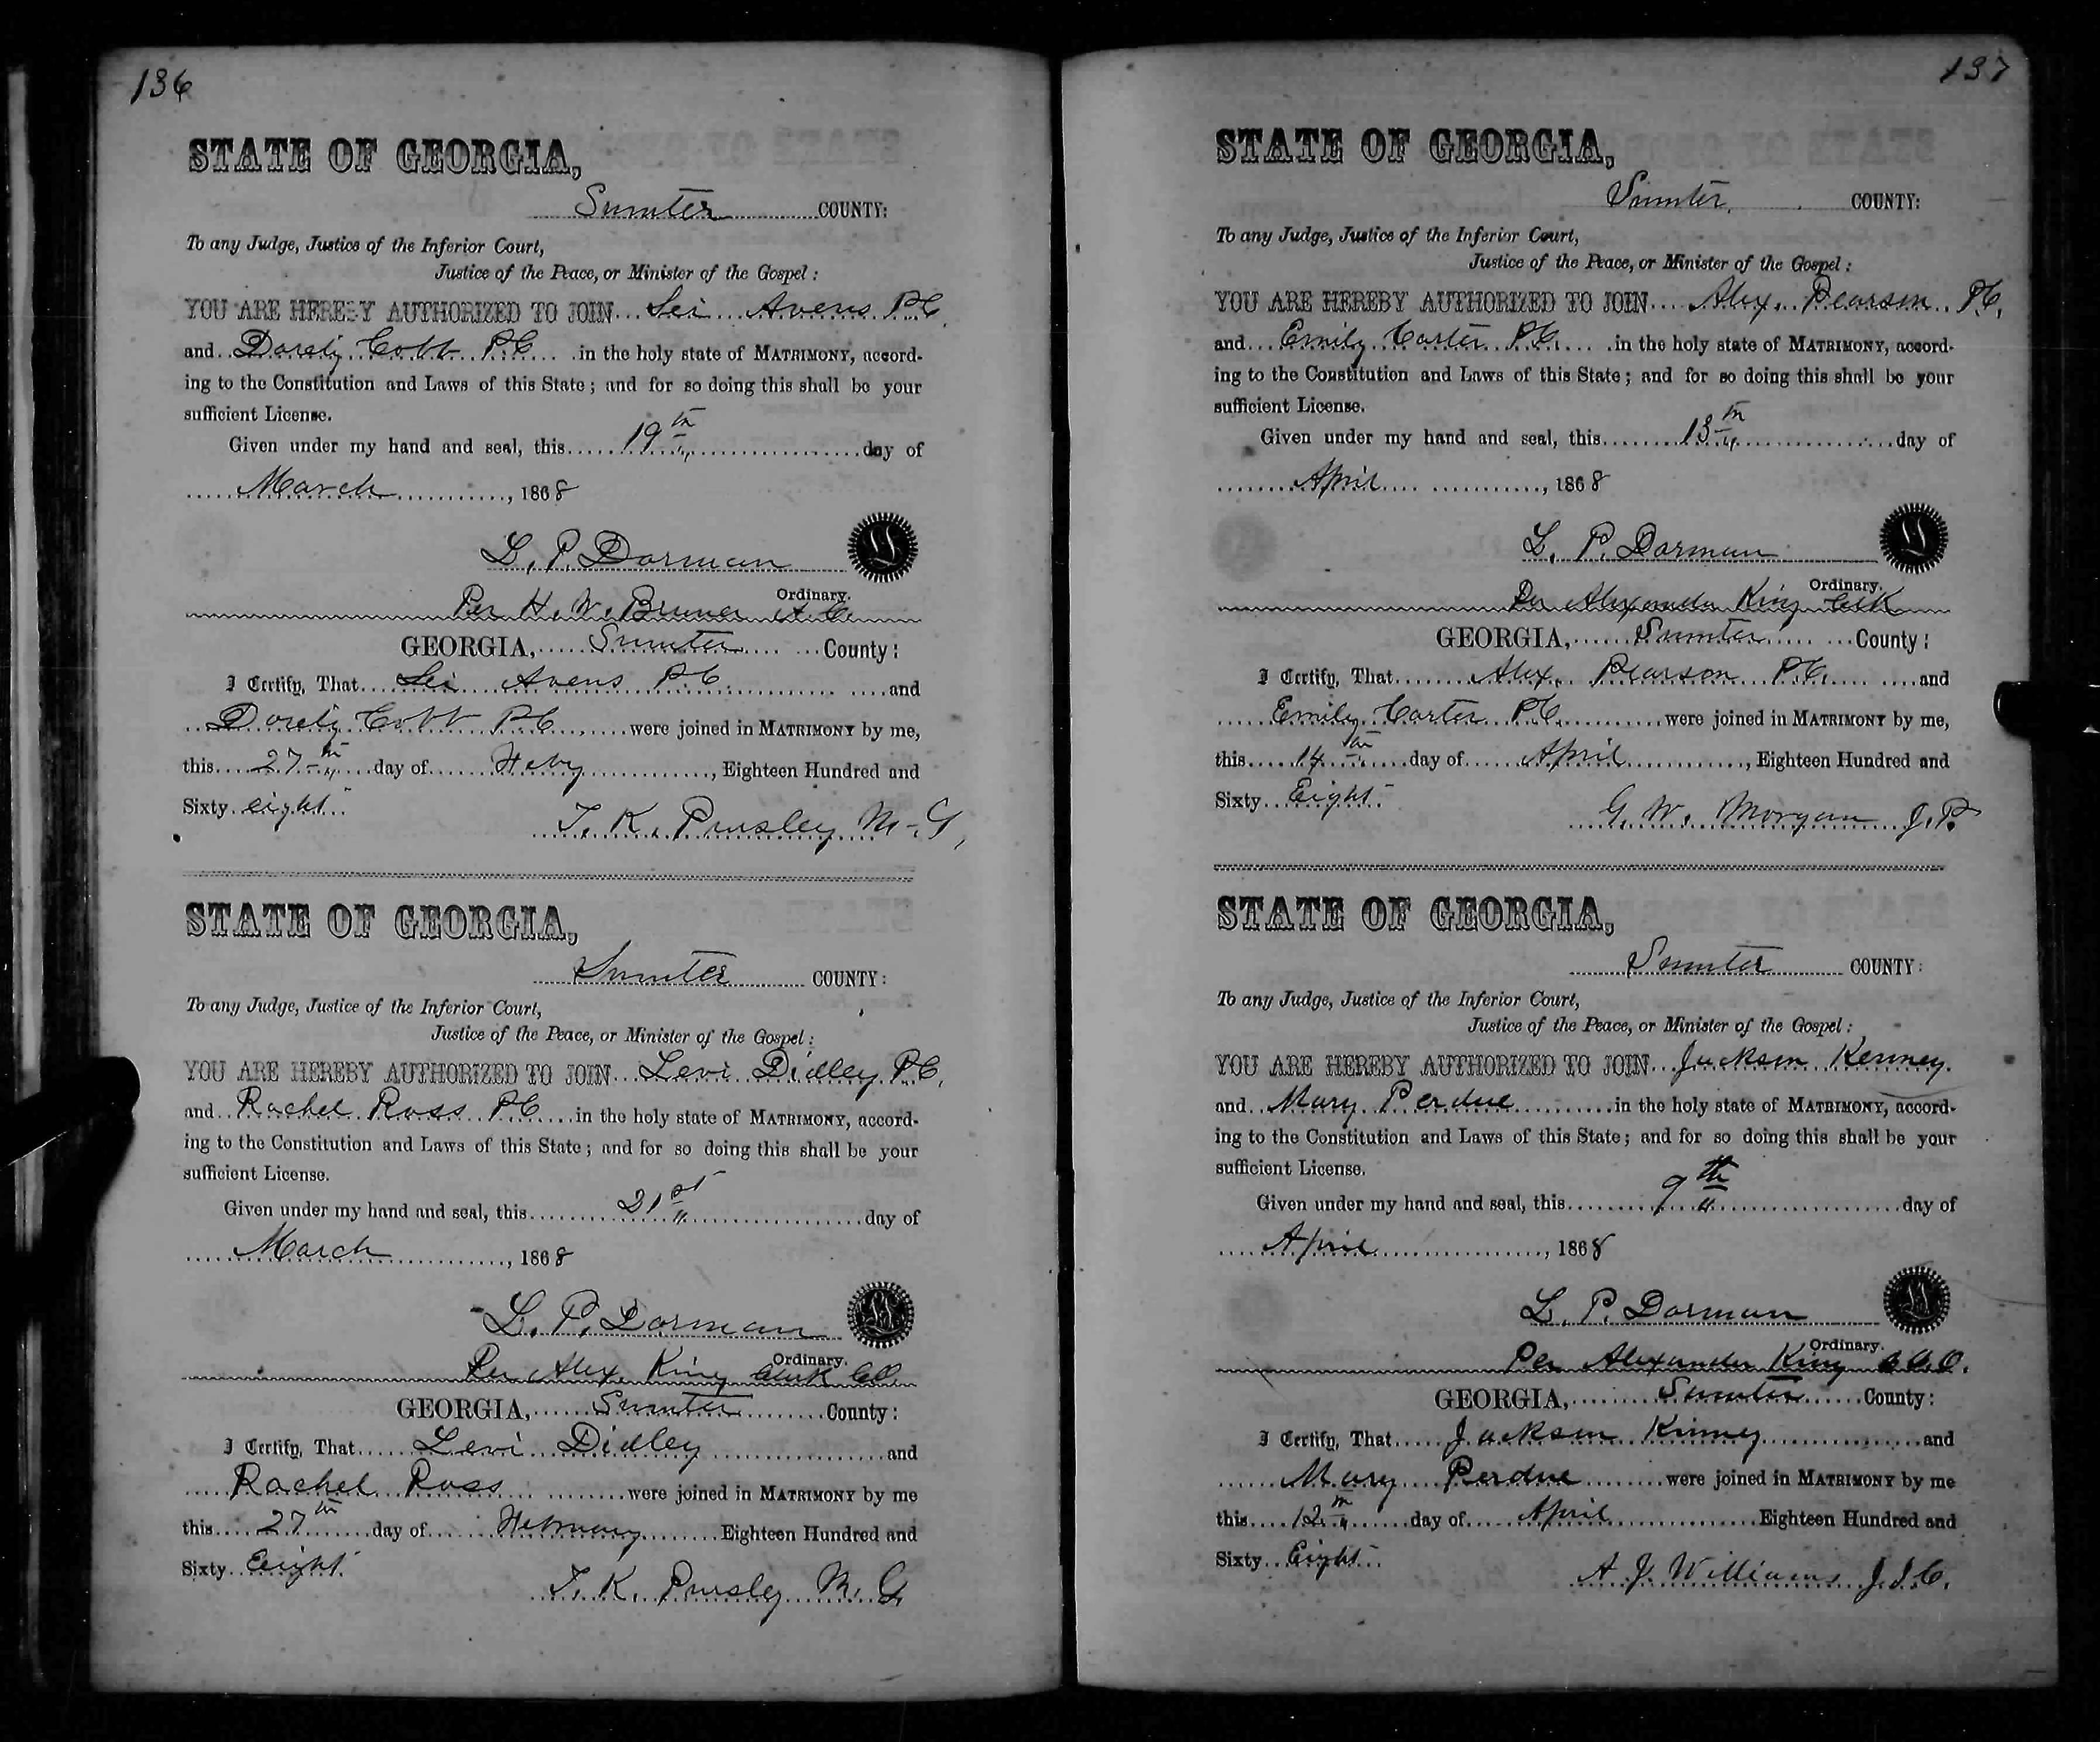 136
STATE OF GEORGIA,
Sumter COUNTY:
To any Judge, Justice of the Inferior Court,
Justice of the Peace, or Minister of the Gospel:
YOU ARE HEREBY AUTHORIZED TO JOIN Sei Avens P.C.
and Dorely Cobb P C in the holy state of MATRIMONY, accord-
ing to the Constitution and Laws of this State; and for so doing this shall be your
sufficient License.
Given under my hand and seal, this 19th day of
March, 1868
L. P. Dorman
Ordinary.
Per H. W. Bruner
GEORGIA, Sumter County:
I Certify, That Sei Avens P C and
Dorely Cobb P C were joined in MATRIMONY by me,
this 27th day of Feby, Eighteen Hundred and
Sixty eight
T. K. Pursley M-G,
STATE OF GEORGIA,
Sumter COUNTY:
To any Judge, Justice of the Inferior Court,
Justice of the Peace, or Minister of the Gospel:
YOU ARE HEREBY AUTHORIZED TO JOIN Levi Didley P.C.
and Rachel Ross P C in the holy state of MATRIMONY, accord-
ing to the Constitution and Laws of this State; and for so doing this shall be your
sufficient License.
Given under my hand and seal, this 21st day of
March, 1868
L. P. Dorman
Ordinary.
Per Alex. King Clerk CO.
GEORGIA, Sumter County:
I Certify, That Levi Didley and
Rachel Ross were joined in MATRIMONY by me
this 27th day of February Eighteen Hundred and
Sixty Eight
T. K. Pursley M. G.
137
STATE OF GEORGIA,
Sumter COUNTY:
To any Judge, Justice of the Inferior Court,
Justice of the Peace, or Minister of the Gospel:
YOU ARE HEREBY AUTHORIZED TO JOIN Alex. Pearson P.C.
and Emily Carter P.C. in the holy state of MATRIMONY, accord-
ing to the Constitution and Laws of this State; and for so doing this shall be your
sufficient License.
Given under my hand and seal, this 13th day of
April, 1868
L. P. Dorman
Ordinary.
Per Alexander King Clk
GEORGIA, Sumter County:
I Certify, That Alex. Pearson P.C. and
Emily Carter P.C. were joined in MATRIMONY by me,
this 14th day of April, Eighteen Hundred and
Sixty Eight
G. W. Morgan J. P.
STATE OF GEORGIA,
Sumter COUNTY:
To any Judge, Justice of the Inferior Court,
Justice of the Peace, or Minister of the Gospel:
YOU ARE HEREBY AUTHORIZED TO JOIN Jackson Kenney
and Mary Perdue in the holy state of MATRIMONY, accord-
ing to the Constitution and Laws of this State; and for so doing this shall be your
sufficient License.
Given under my hand and seal, this 9th day of
April, 1868
L. P. Dorman
Ordinary.
Per Alexander King C.C.O.
GEORGIA, Sumter County:
I Certify, That Jackson Kinney and
Mary Perdue were joined in MATRIMONY by me
this 12th day of April Eighteen Hundred and
Sixty Eight
A. J. Williams J.I.C.